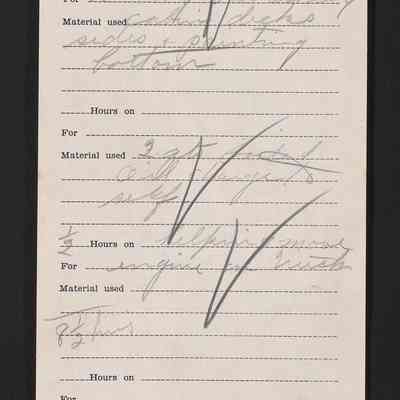 For
Material used cabin decks
sides + painting
bottom
Hours on
For
Material used 2 qts
self
½ Hours on helping move
For engine in truck
Material used
8½ hrs
Hours on
For